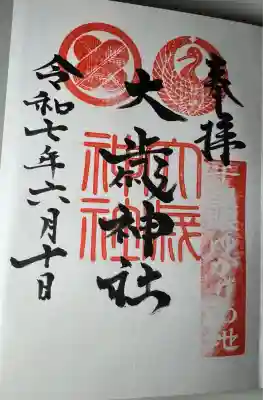 奉拝
大歳神社
大歳神社
令和七年六月十日